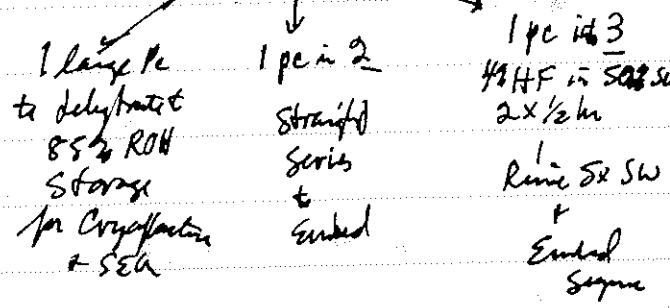 1 large Pc
to dehydrate t
85% ROH
Storage
for Cryofracture
+ SEM
1 pc in 2
Straight
Series
to
Embed
1 pc in 3
4% HF in SW
2 x 1/2 hr
Rinse 5x SW
+
Embed